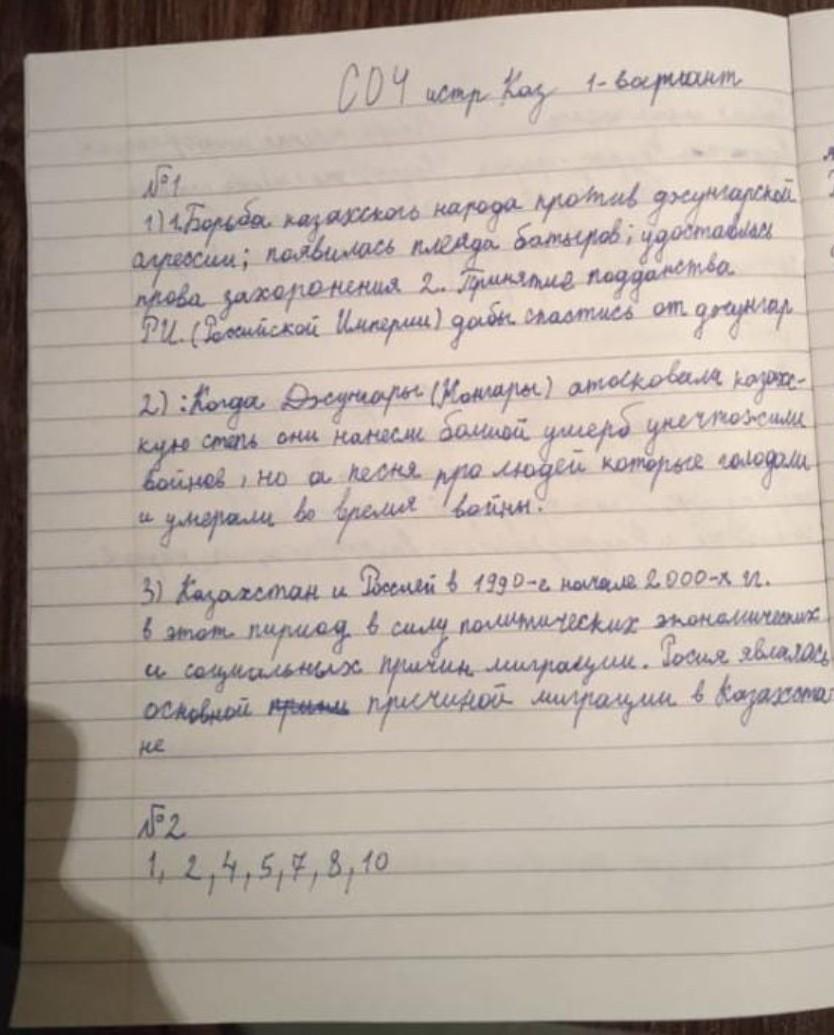 СОЧ истр Каз 1-вариант
№1
1) 1. Борьба казахского народа против джунгарской
агрессии; появилась плеяда батыров; удостаились
права захоронения 2. Принятие подданства
Р.И. (Российской Империи) дабы спастись от джунгар
2) : Когда Джунгары (Жонгары) атоковали казахс-
кую степь они нанесли большой ущерб унечтожили
войнов, но а песня про людей которые голодали
и умерали во время войны.
3) Казахстан и Россией в 1990-е начале 2000-х гг.
в этот период в силу политических экономических
и социальных причин миграции. Росия являлась
основной причиной миграции в Казахста-
не
№2
1, 2, 4, 5, 7, 8, 10